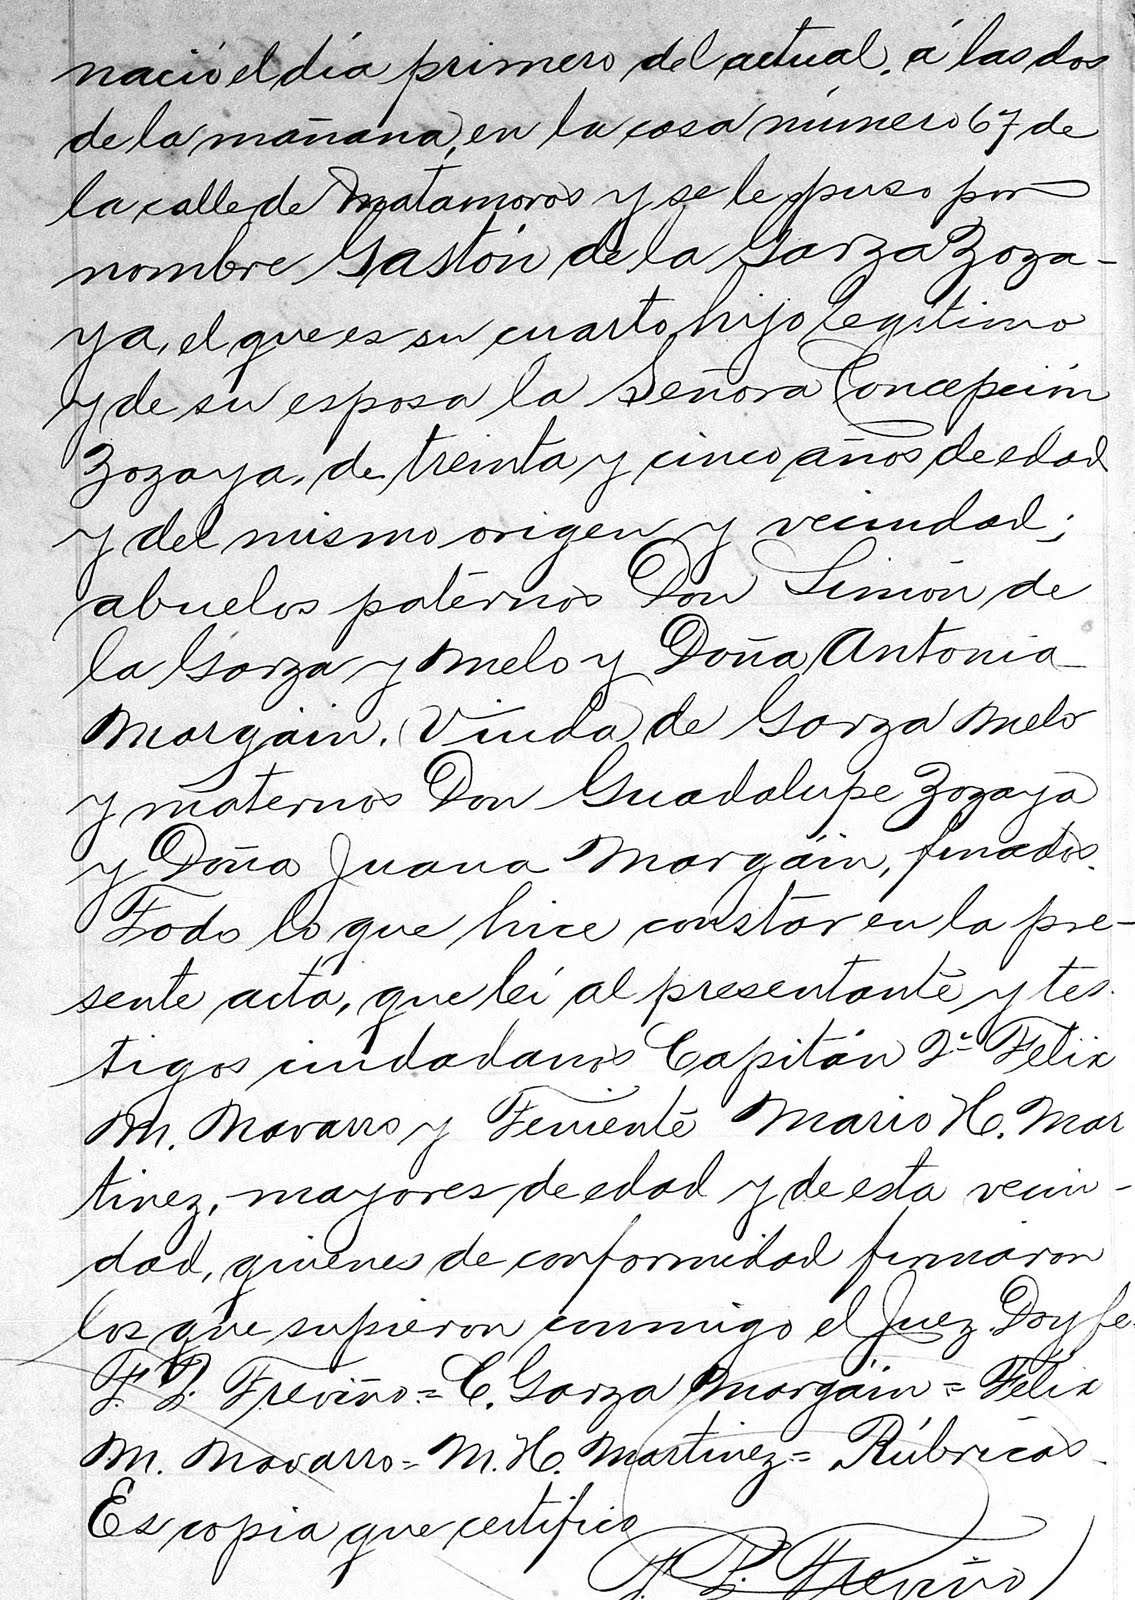 nació el día primero del actual, á las dos
de la mañana, en la casa número 67 de
la calle de Matamoros y se le puso por
nombre Gastón de la Garza Zoza-
ya, el que es su cuarto hijo legítimo
y de su esposa la Señora Concepción
Zozaya, de treinta y cinco años de edad
y del mismo origen y vecindad;
abuelos paternos Don Simón de
la Garza y Melo y Doña Antonia
Margáin, Viuda de Garza Melo
y maternos Don Guadalupe Zozaya
y Doña Juana Margáin, finados.
Todo lo que hice constar en la pre-
sente acta, que leí al presentante y tes-
tigos ciudadanos Capitán 2º Felix
M. Navarro y Teniente Mario H. Mar
tinez, mayores de edad y de esta vecin-
dad, quienes de conformidad firmaron
los que supieron conmigo el Juez. Doy fe.
F. P. Treviño = C. Garza Margáin = Felix
M. Navarro = M. H. Martinez = Rúbricas.
Es copia que certifico
F. P. Treviño